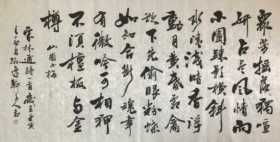 衆芳摇落獨暄
妍占尽風情向
小園疏影横斜
水清淺暗香浮
動月黄昏霜禽
欲下先偷眼粉蝶
如知合断魂幸
有微吟可相狎
不須檀板共金
樽 山園小梅
宋林逋詩一首